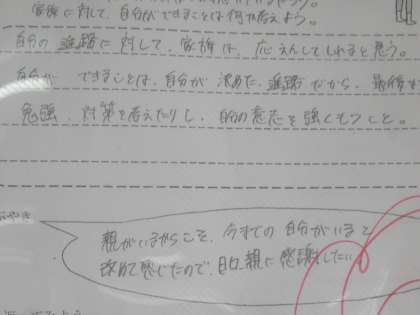 家族に対して、自分ができることは何か考えよう。
自分の進路に対して、家族は、応えんしてくれると思う。
自分が できることは、自分が決めた進路だから、最後まで
勉強、対策を考えたりし、自分の意志を強くもつこと。
親がいるからこそ、今までの自分がいると
改めて感じたので、親に感謝したい。